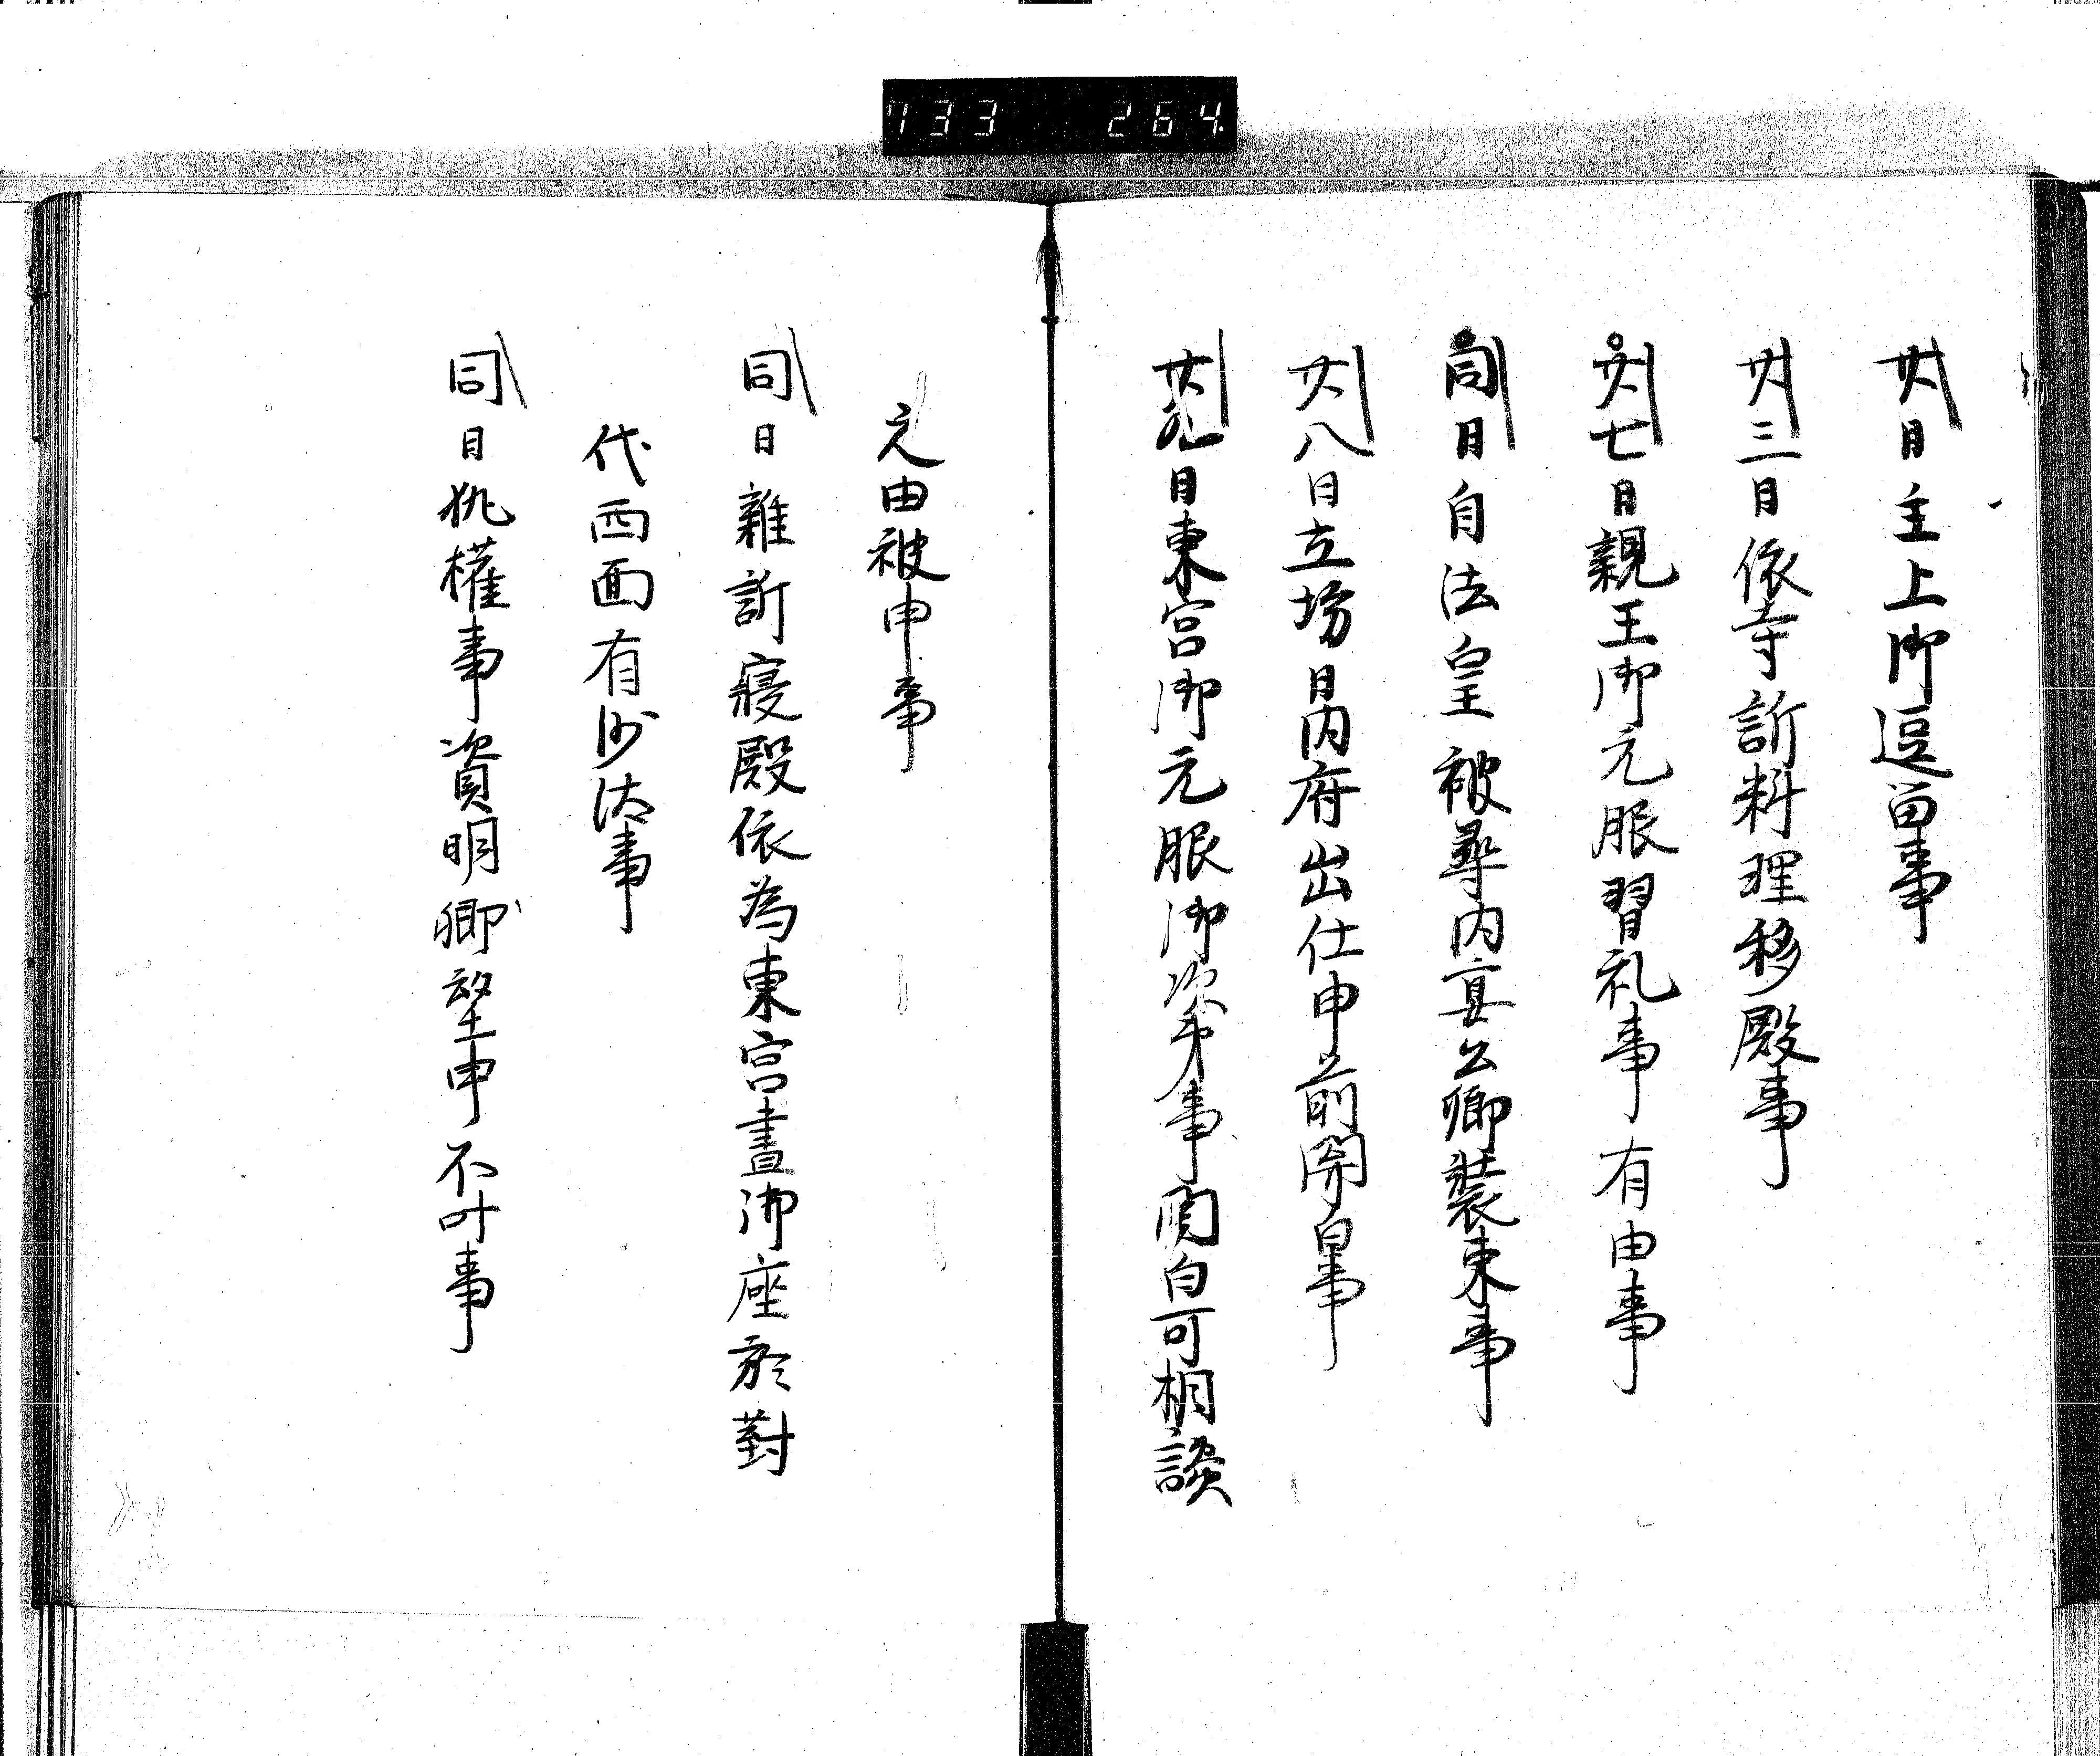 733 264
廿日主上御逗留事
廿三日依寺訴料理移殿事
廿七日親王御元服習礼事有由事
同日自法皇被尋内宴公卿装束事
廿八日立坊日内府出仕申前関白事
廿九日東宮御元服御次第事関白可相談
之由被申事
同日雑訴寝殿依為東宮昼御座於対
代西面有沙汰事
同日執権事資明卿望申不叶事